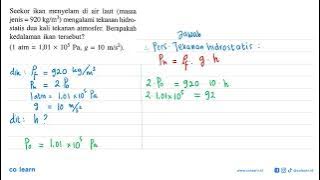 Seekor ikan menyelam di air laut (massa
jenis = 920 kg/m³) mengalami tekanan hidro-
statis dua kali tekanan atmosfer. Berapakah
kedalaman ikan tersebut?
(1 atm = 1,01 × 10⁵ Pa, g = 10 m/s²).
dik : ρf = 920 kg/m³
Ph = 2 Po
1 atm = 1.01 x 10⁵ Pa
g = 10 m/s²
dit : h ?
Po = 1.01 x 10⁵ Pa
Jawab
Pers. Tekanan hidrostatis :
Ph = ρf . g . h
2 . Po = 920 . 10 . h
2 . 1.01 x 10⁵ = 92
co learn
www.colearn.id
@colearn.id